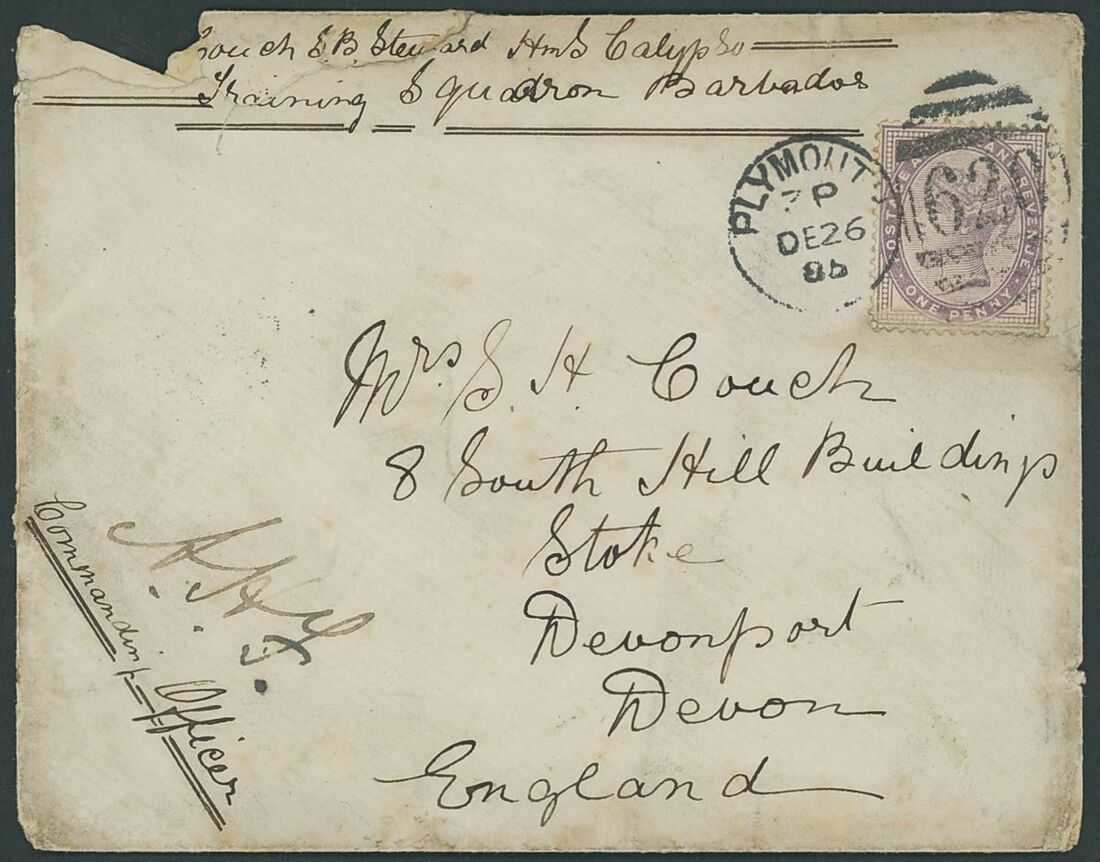 Couch S.B. Steward HMS Calypso
Training Squadron Barbados
PLYMOUTH
DE 26
POSTAGE AND REVENUE
ONE PENNY
Mrs S. H. Couch
8 South Hill Buildings
Stoke
Devonport
Devon
England
Commanding Officer